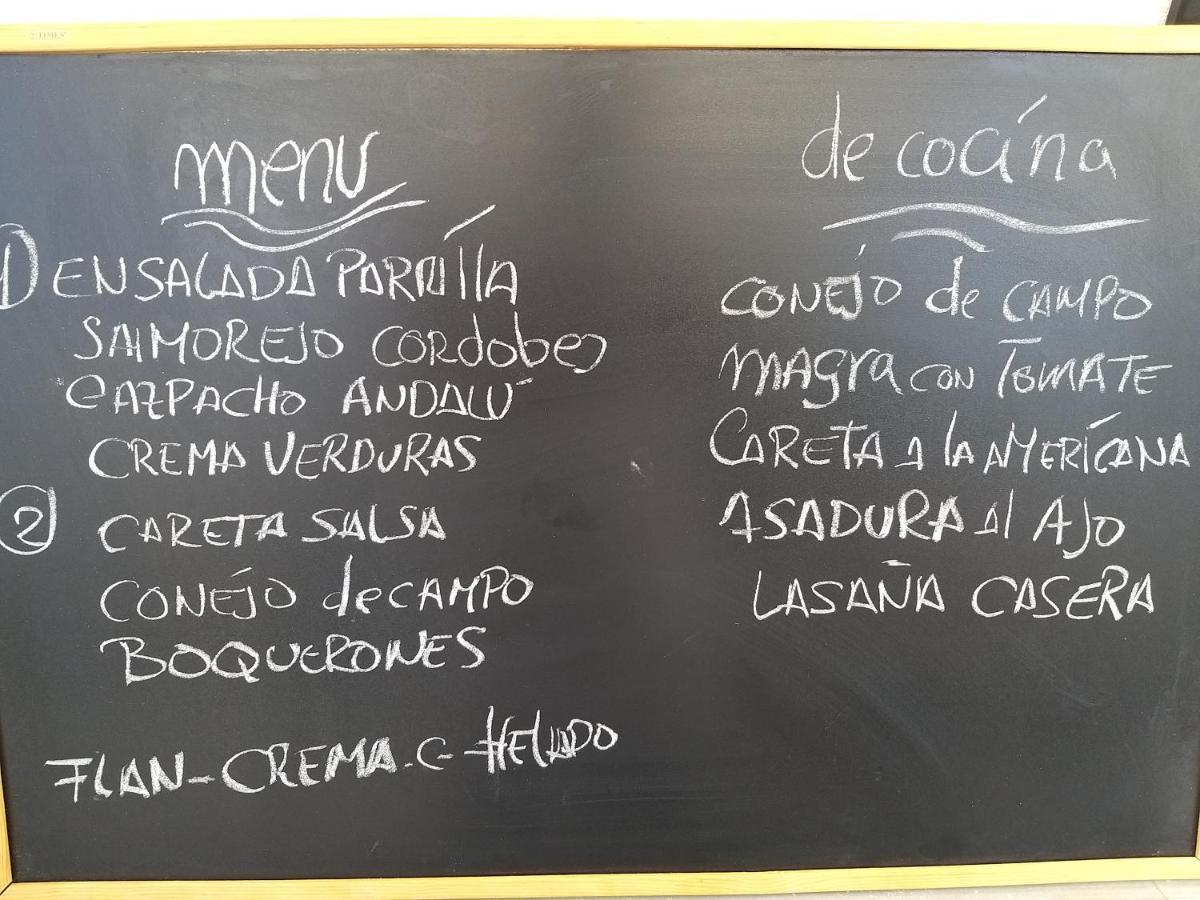 menu
1) ENSALADA PARRILLA
SALMOREJO CORdobes
GAZPACHO ANDALU
CREMA VERDURAS
2 CARETA SALSA
CONEJO de CAMPO
BOQUERONES
FLAN-CREMA.C-HELADO
de cocina
CONEJO de CAMPO
MAGRA CON TOMATE
CARETA A la AMERICANA
ASADURA Al AJO
LASAÑA CASERA